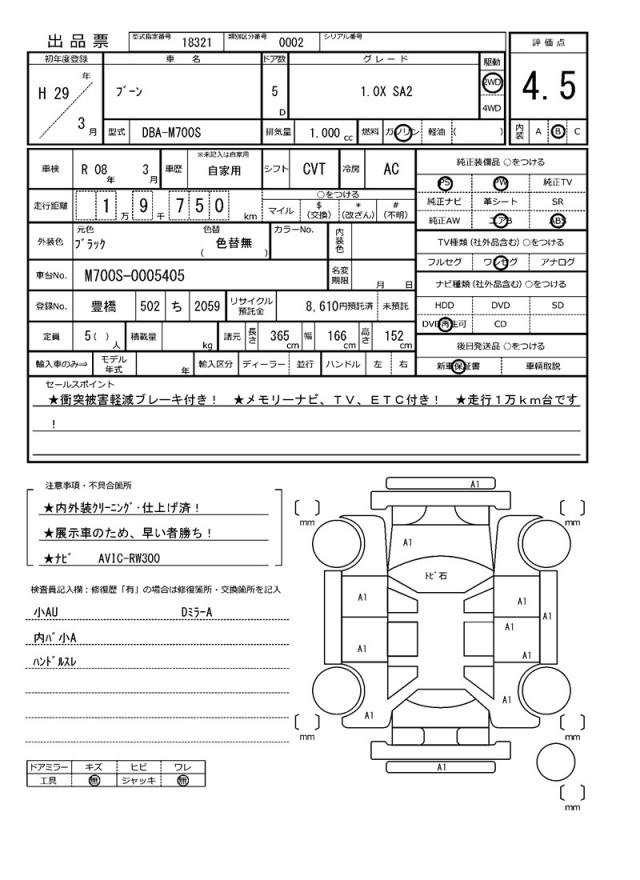 出品票 型式指定番号 18321 類別区分番号 0002 シリアル番号
評価点
4.5
内装 A B C
初年度登録 車名 ドア数 グレード 駆動
H 29 年 3 月 ブーン 5 D 1.0X SA2 2WD 4WD
型式 DBA-M700S 排気量 1.000 cc 燃料 ガソリン 軽油 ( )
車検 R 08 年 3 月 車歴 ※未記入は自家用 自家用 シフト CVT 冷房 AC
走行距離 1 万 9 千 7 5 0 km ○をつける マイル $ (交換) * (改ざん) # (不明)
外装色 元色 ブラック 色替 ( 色替無 ) カラーNo. 内装色
車台No. M700S-0005405 名変期限 月 日
登録No. 豊橋 502 ち 2059 リサイクル預託金 8,610円預託済 未預託
定員 5( ) 人 積載量 kg 諸元 長さ 365 cm 幅 166 cm 高さ 152 cm
輸入車のみ⇒ モデル年式 年 輸入区分 ディーラー 並行 ハンドル 左 右
純正装備品 ○をつける
PS PW 純正TV
純正ナビ 革シート SR
純正AW エアB ABS
TV種類(社外品含む) ○をつける
フルセグ ワンセグ アナログ
ナビ種類(社外品含む) ○をつける
HDD DVD SD
DVD再生可 CD
後日発送品 ○をつける
新車保証書 車輌取説
セールスポイント
★衝突被害軽減ブレーキ付き! ★メモリーナビ、TV、ETC付き! ★走行1万km台です
!
注意事項・不具合箇所
★内外装クリーニング・仕上げ済!
★展示車のため、早い者勝ち!
★ナビ AVIC-RW300
検査員記入欄:修復歴「有」の場合は修復箇所・交換箇所を記入
小AU Dミラ-A
内バ小A
ハンドルスレ
ドアミラー キズ ヒビ ワレ
工具 無 ジャッキ 無
A1
mm
mm
A1
トビ石
A1
A1
A1
A1
A1
A1
A1
A1
mm
mm
A1
mm